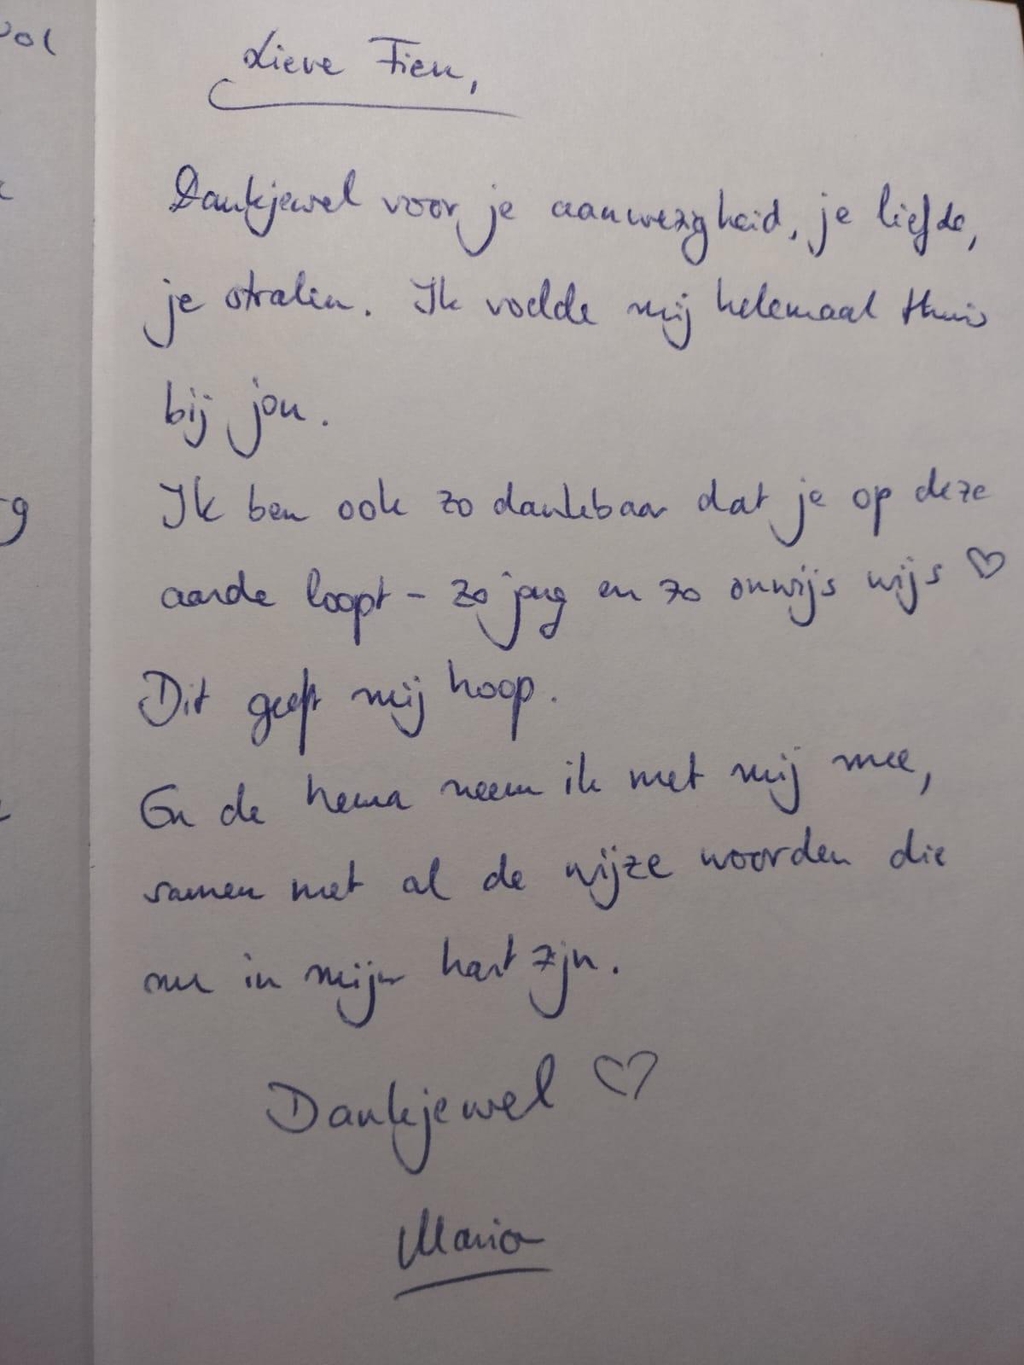 Lieve Fien,
Dankjewel voor je aanwezigheid, je liefde,
je stralen. Ik voelde mij helemaal thuis
bij jou.
Ik ben ook zo dankbaar dat je op deze
aarde loopt - zo jong en zo onwijs wijs ♡
Dit geeft mij hoop.
En de hema neem ik met mij mee,
samen met al de wijze woorden die
nu in mijn hart zijn.
Dankjewel ♡
Maria